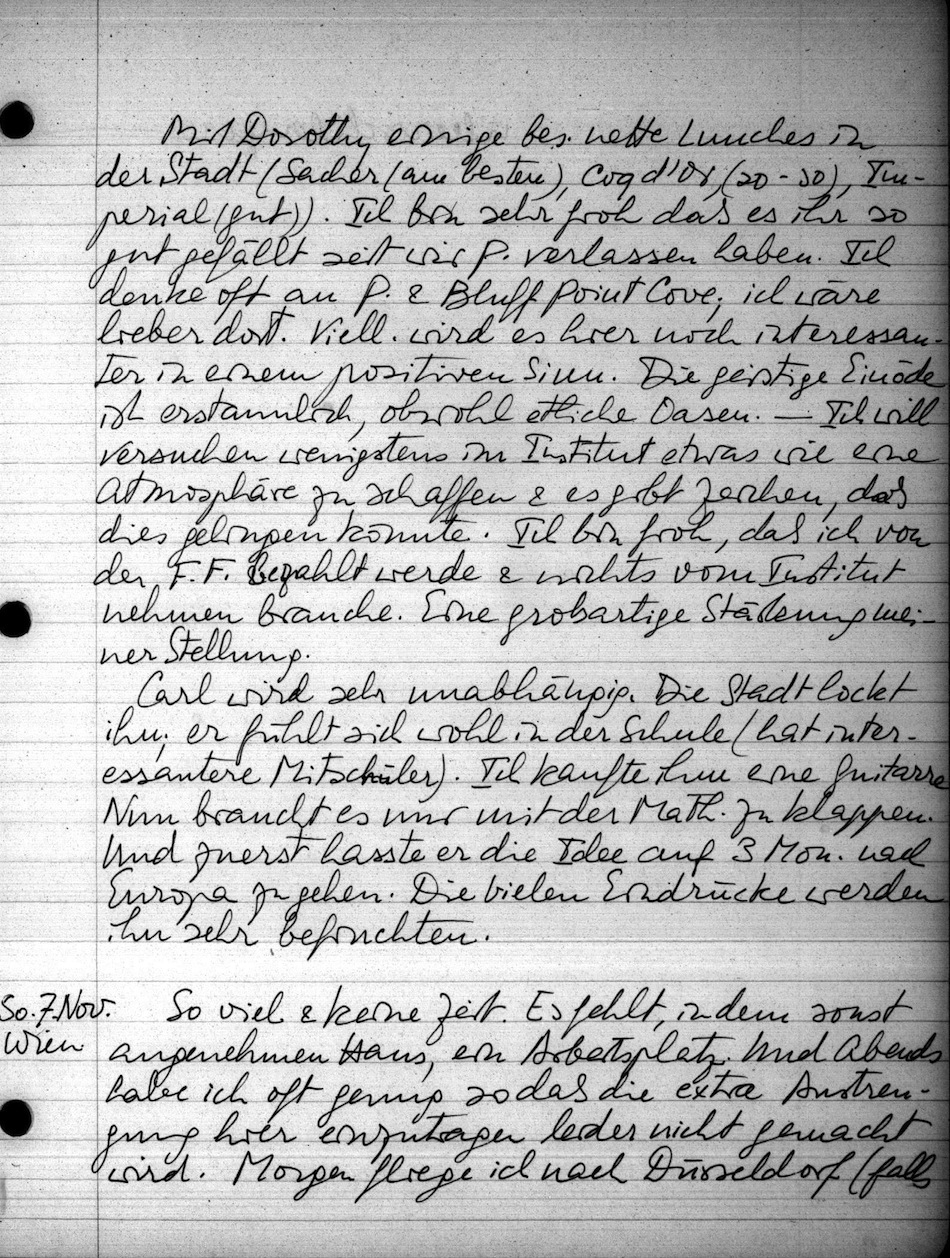 Mit Dorothy einige bes. nette Lunches in
der Stadt (Sacher (am besten), Coq d'Or, (20-30), Im-
perial (gut)). Ich bin sehr froh das es ihr so
gut gefällt seit wir P. verlassen haben. Ich
denke oft an P. & Bluff Point Cove; ich wäre
lieber dort. Viell. wird es hier noch interessan-
ter in einem positiven Sinn. Die geistige Einöde
ist erstaunlich, obwohl etliche Oasen. — Ich will
versuchen wenigstens im Institut etwas wie eine
Atmosphäre zu schaffen & es gibt Zeichen, das
dies gelingen könnte. Ich bin froh, das ich von
der F.F. bezahlt werde & nichts vom Institut
nehmen brauche. Eine grosartige Stärkung mei-
ner Stellung.
Carl wird sehr unabhängig. Die Stadt lockt
ihn; er fühlt sich wohl in der Schule (hat inter-
essantere Mitschüler). Ich kaufte ihm eine Guitarre
Nun braucht es nur mit der Math. zu klappen.
Und zuerst hasste er die Idee auf 3 Mon. nach
Europa zu gehen. Die vielen Eindrücke werden
ihn sehr befruchten.
So. 7. Nov. So viel & keine Zeit. Es fehlt, in dem sonst
Wien angenehmen Haus, ein Arbeitsplatz. Und Abends
habe ich oft genug sodas die extra Anstren-
gung hier einzutragen leider nicht gemacht
wird. Morgen fliege ich nach Düsseldorf (falls